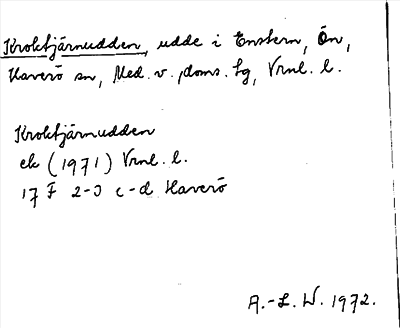 Kroktjärnudden, udde i Enstern, Ön,
Haverö sn, Med. v. doms. tg, Vrnl. l.
Kroktjärnudden
ek (1971) Vrml. l.
17 F 2-3 c-d Haverö
A.-L. W. 1972.